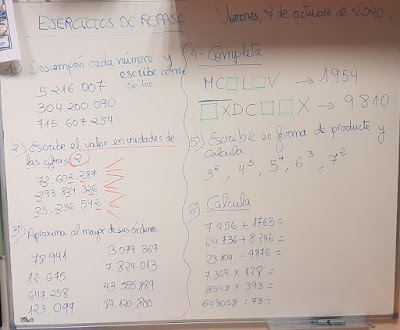 EJERCICIOS DE REPASO
Viernes, 9 de octubre de 2020
1) Descompón cada número y
escribe cómo
se lee.
5 216 007
304 200 090
715 607 254
2) Escribe el valor en unidades de
las cifras 2
72.602.287
293.834.326
25.236.542
3º) Aproxima al mayor de sus órdenes.
78941
12 675
647.258
123.099
3.079.369
7.824.013
4º- Completa
MC□L□V → 1954
□XDC□□X → 9.810
5º) Escribe en forma de producto y
calcula
3⁵, 4³, 5⁴, 6³, 7²
6º) Calcula
7 456 + 1765 =
64 736 + 8246 =
23 104 - 9876 =
7369 x 428 =
8548 x 393 =
643058 : 73 =